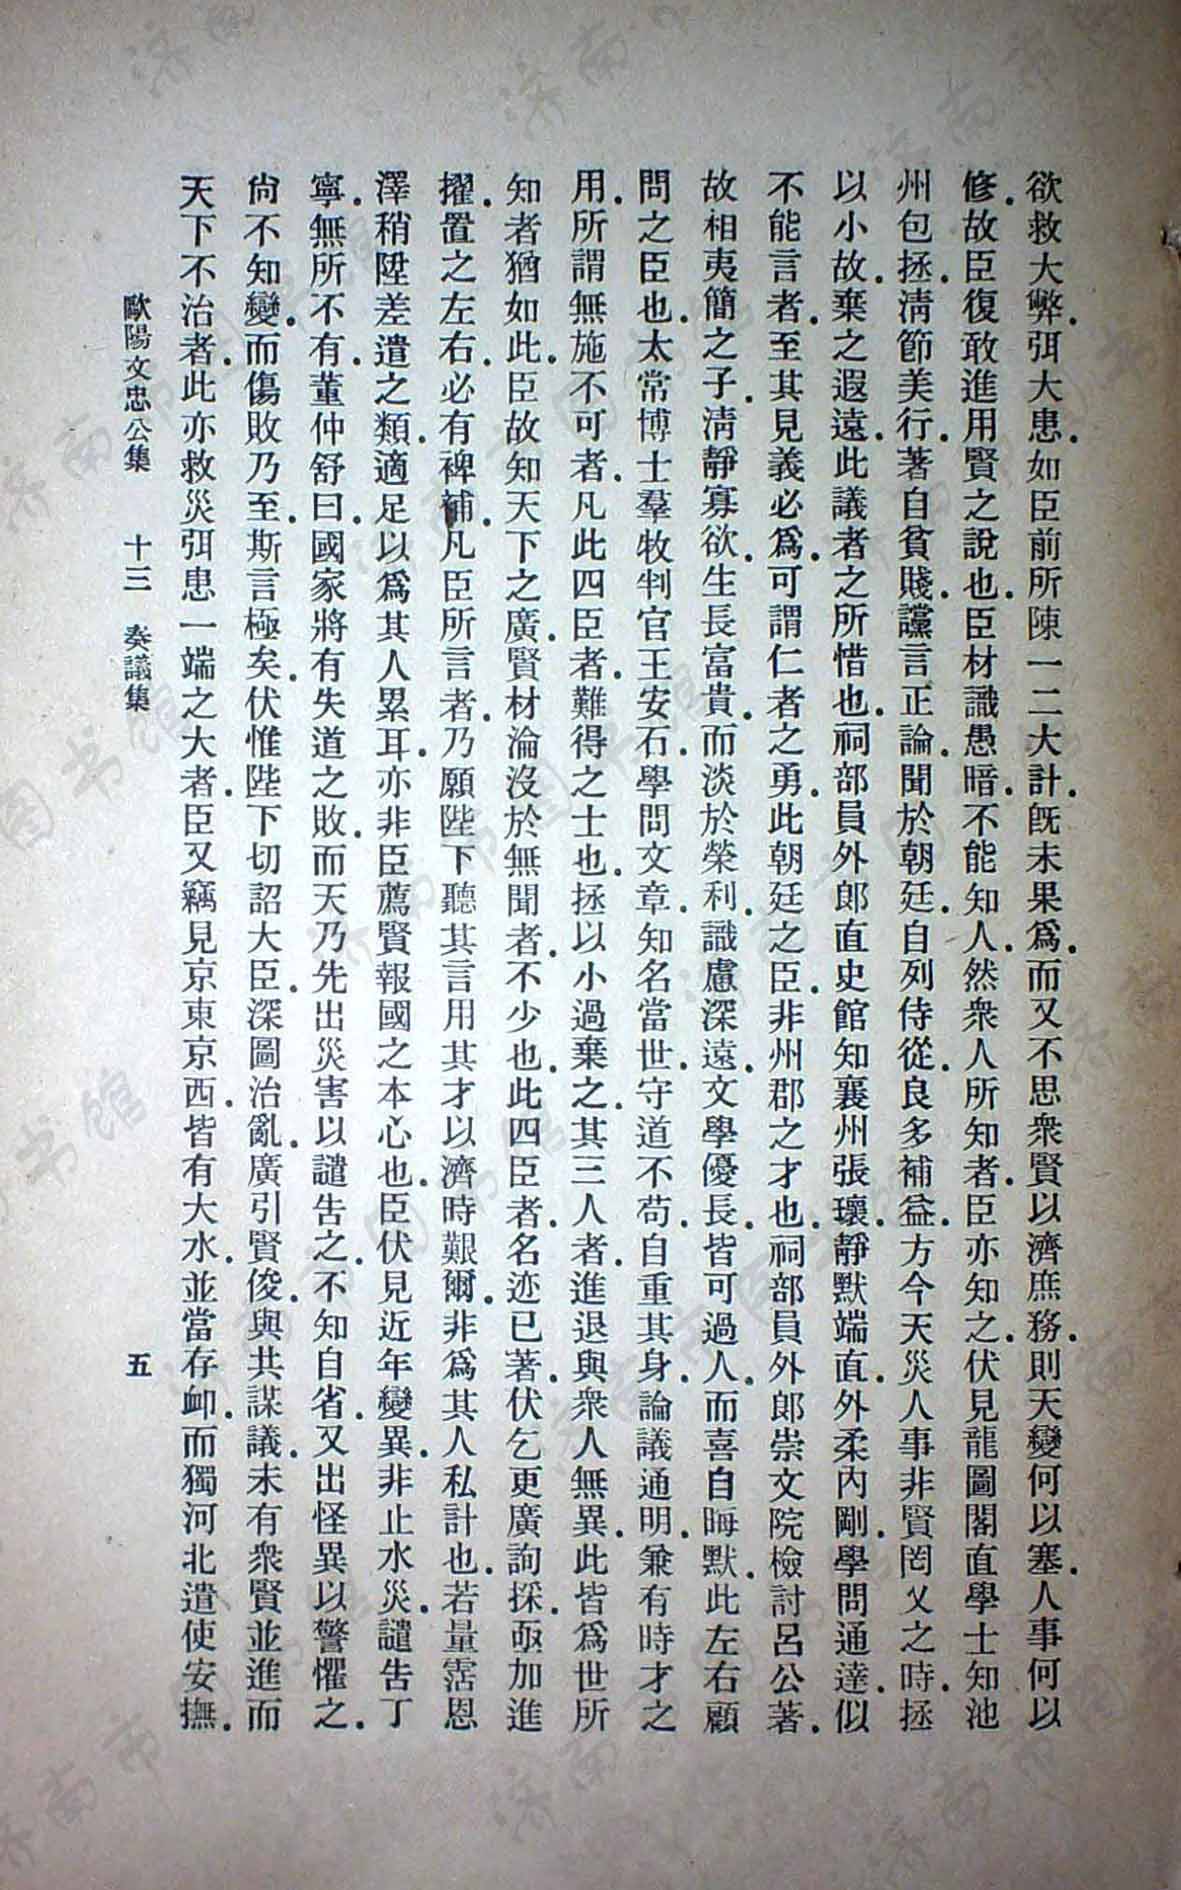 欲救大弊.弭大患.如臣前所陳一二大計.旣未果爲.而又不思衆賢以濟庶務.則天變何以塞.人事何以
修.故臣復敢進用賢之說也.臣材識愚暗.不能知人.然衆人所知者.臣亦知之.伏見龍圖閣直學士知池
州包拯.淸節美行.著自貧賤.讜言正論.聞於朝廷.自列侍從.良多補益.方今天災人事非賢罔乂之時.拯
以小故.棄之遐遠.此議者之所惜也.祠部員外郞直史館知襄州張瓌.靜默端直.外柔內剛.學問通達.似
不能言者.至其見義必爲.可謂仁者之勇.此朝廷之臣.非州郡之才也.祠部員外郞崇文院檢討呂公著.
故相夷簡之子.淸靜寡欲.生長富貴.而淡於榮利.識慮深遠.文學優長.皆可過人.而喜自晦默.此左右顧
問之臣也.太常博士羣牧判官王安石.學問文章.知名當世.守道不苟.自重其身.論議通明.兼有時才之
用.所謂無施不可者.凡此四臣者.難得之士也.拯以小過棄之.其三人者.進退與衆人無異.此皆爲世所
知者猶如此.臣故知天下之廣.賢材淪沒於無聞者.不少也.此四臣者.名迹已著.伏乞更廣詢採.亟加進
擢.置之左右.必有裨補.凡臣所言者.乃願陛下聽其言用其才以濟時艱爾.非爲其人私計也.若量霑恩
澤稍陞差遣之類.適足以爲其人累耳.亦非臣薦賢報國之本心也.臣伏見近年變異.非止水災.譴告丁
寧.無所不有.董仲舒曰.國家將有失道之敗.而天乃先出災害以譴吿之.不知自省.又出怪異以警懼之.
尙不知變.而傷敗乃至.斯言極矣.伏惟陛下切詔大臣.深圖治亂.廣引賢俊.與共謀議.未有衆賢並進而
天下不治者.此亦救災弭患一端之大者.臣又竊見京東京西.皆有大水.並當存卹.而獨河北遣使安撫.
歐陽文忠公集　十三　奏議集　五